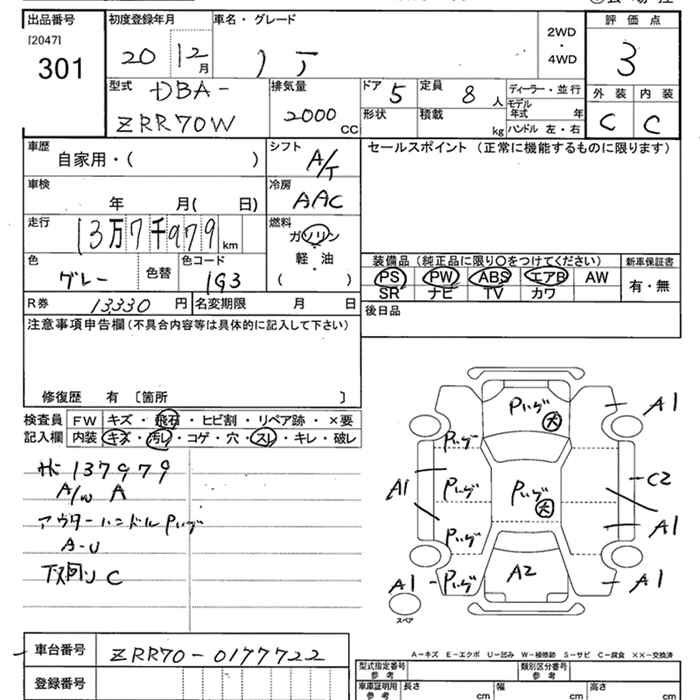 出品番号 初度登録年月 車名・グレード 評価点
[2047]
301
20 12 月
2WD
・
4WD
3
型式 DBA-
ZRR70W
排気量
2000 CC
ドア 5 定員 8 人
ディーラー・並行
モデル年式 年
形状 積載 kg ハンドル 左・右
外装 内装
C C
車歴
自家用・( )
シフト A/T
セールスポイント (正常に機能するものに限ります)
車検
年 月( 日)
冷房
AAC
走行
13万7千979 km
燃料
ガソリン
軽・油
( )
色
グレー
色替
色コード
1G3
装備品 (純正品に限り〇をつけてください) 新車保証書
PS PW ABS エアB AW 有・無
SR ナビ TV カワ
R券 13330 円 名変期限 月 日
後日品
注意事項申告欄 (不具合内容等は具体的に記入して下さい)
修復歴 有 〔箇所 〕
検査員 FW キズ・飛石・ヒビ割・リペア跡・×要
記入欄 内装 キズ・汚レ・コゲ・穴・スレ・キレ・破レ
137979
A/W A
アウターハンドルPいげ
A-U
下廻りC
Pいげ 大 A1
Pいげ
A1 Pいげ Pいげ 大 C2
Pいげ A1
A1 - Pいげ A2 A1
スペア
A-キズ E-エクボ U-凹み W-補修跡 S-サビ C-腐食 ××-交換済
車台番号 ZRR70-0177722
登録番号
型式指定番号 参考 類別区分番号 参考
車庫証明用 参考 長さ cm 幅 cm 高さ cm